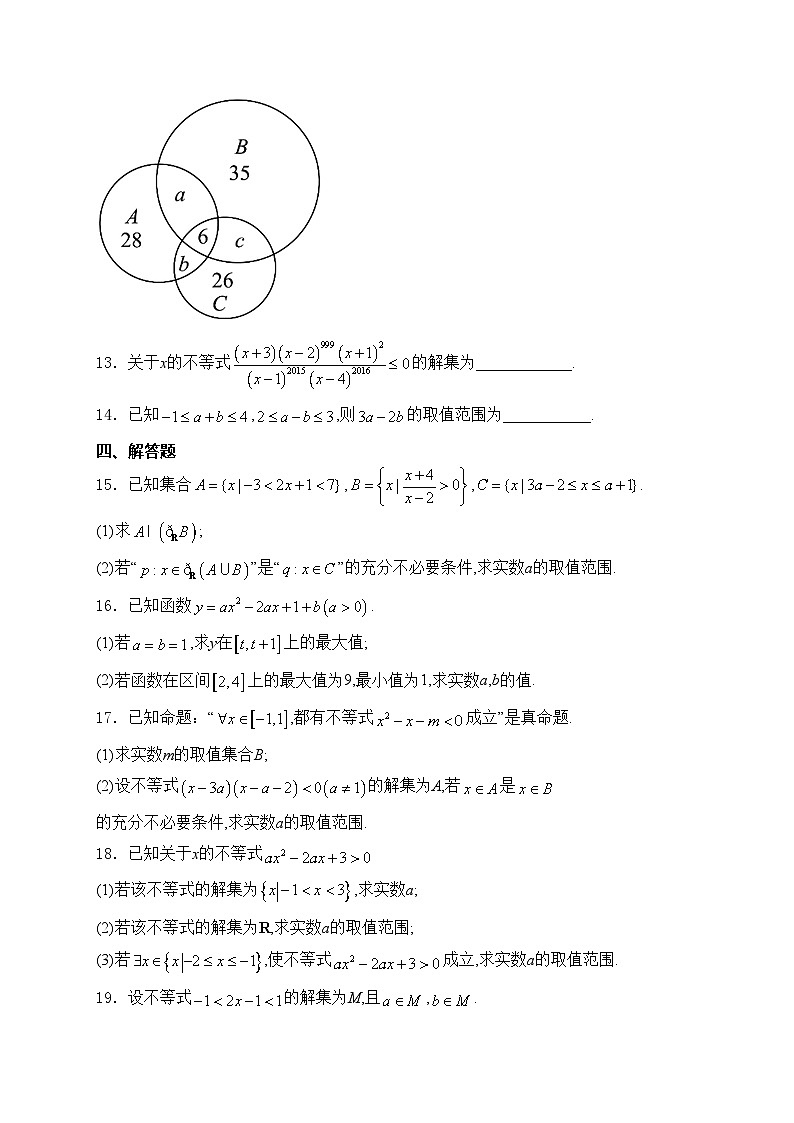 B
35
a
A
28
6
c
b
26
C
13．关于x的不等式 \frac{(x+3)(x-2)^{999}(x+1)^{2}}{(x-1)^{2015}(x-4)^{2016}} ≤ 0 的解集为____________.
14．已知 -1≤a+b≤4 , 2≤a-b≤3 ,则 3a-2b 的取值范围为___________.
四、解答题
15．已知集合 A={x|-3<2x+1<7} , B={x|\frac{x+4}{x-2}>0} , C={x|3a-2≤x≤a+1} .
(1)求 A I (ð_R B) ;
(2)若“ p : x∈ð_R(A∪B) ”是“ q : x∈C ”的充分不必要条件,求实数a的取值范围.
16．已知函数 y=ax²-2ax+1+b(a>0) .
(1)若 a=b=1 ,求y在[t,t+1]上的最大值;
(2)若函数在区间[2,4]上的最大值为9,最小值为1,求实数a,b的值.
17．已知命题：“ ∀x∈[-1,1] ,都有不等式 x²-x-m<0 成立”是真命题.
(1)求实数m的取值集合B;
(2)设不等式 (x-3a)(x-a-2)<0(a≠1) 的解集为A,若 x∈A 是 x∈B
的充分不必要条件,求实数a的取值范围.
18．已知关于x的不等式 ax²-2ax+3>0
(1)若该不等式的解集为 {x|-1<x<3} ,求实数a;
(2)若该不等式的解集为R,求实数a的取值范围;
(3)若 ∃x∈{x|-2≤x≤-1} ,使不等式 ax²-2ax+3>0 成立,求实数a的取值范围.
19．设不等式 -1<2x-1<1 的解集为M,且 a∈M , b∈M .